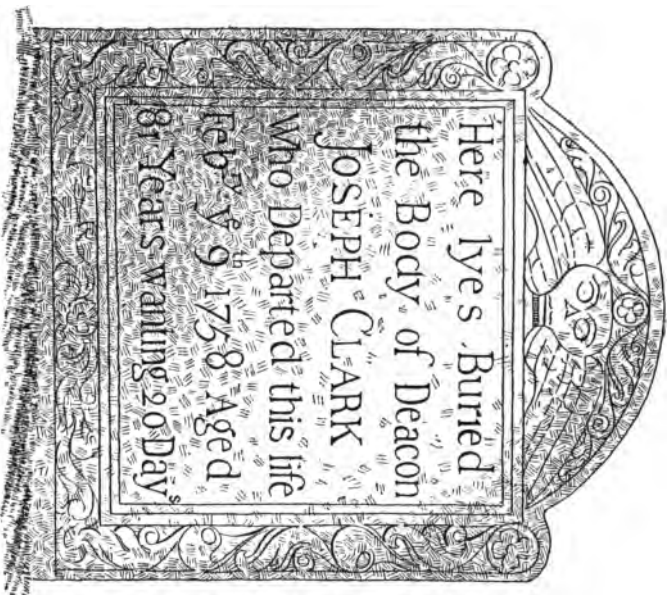 Here lyes Buried
the Body of Deacon
JOSEPH CLARK
Who Departed this life
Febʸ yᵉ 9ᵗʰ 1758 Aged
81 Years wanting 20 Dayˢ